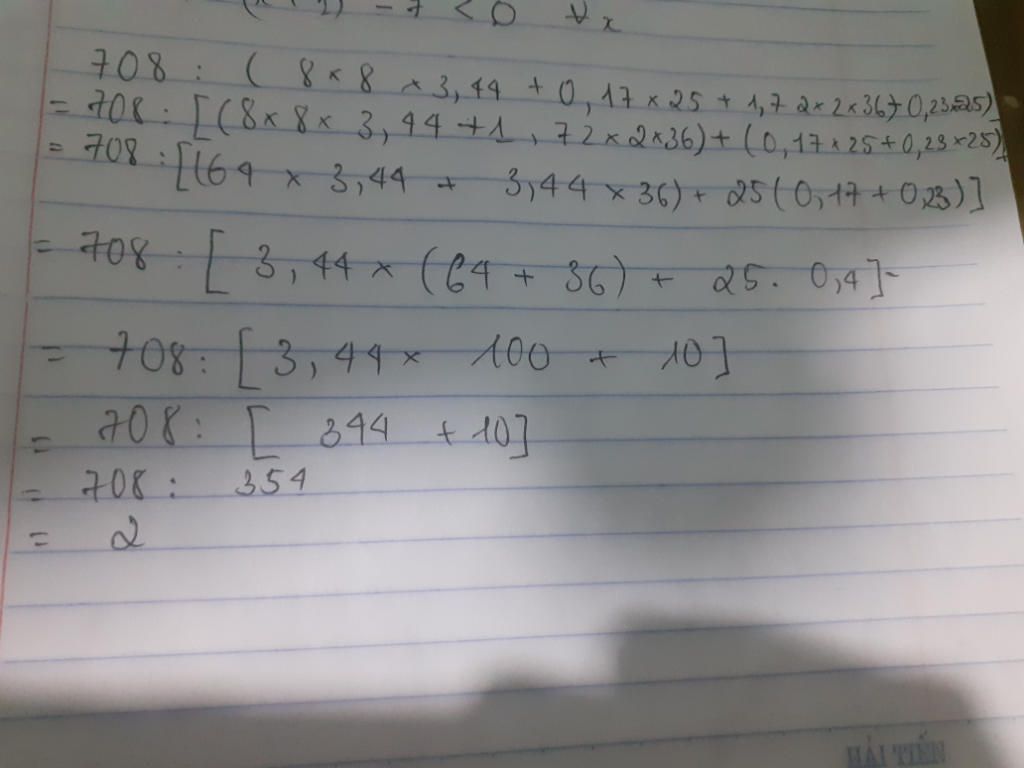 - 7 < 0 ∀x
708 : ( 8 × 8 × 3,44 + 0,17 × 25 + 1,72 × 2 × 36 + 0,23×25)
= 708 : [(8 × 8 × 3,44 + 1,72 × 2 × 36) + (0,17 × 25 + 0,23 × 25)]
= 708 : [(64 × 3,44 + 3,44 × 36) + 25(0,17 + 0,23)]
= 708 : [ 3,44 × (64 + 36) + 25. 0,4]
= 708 : [ 3,44 × 100 + 10]
= 708 : [ 344 + 10]
= 708 : 354
= 2
HẢI TIẾN